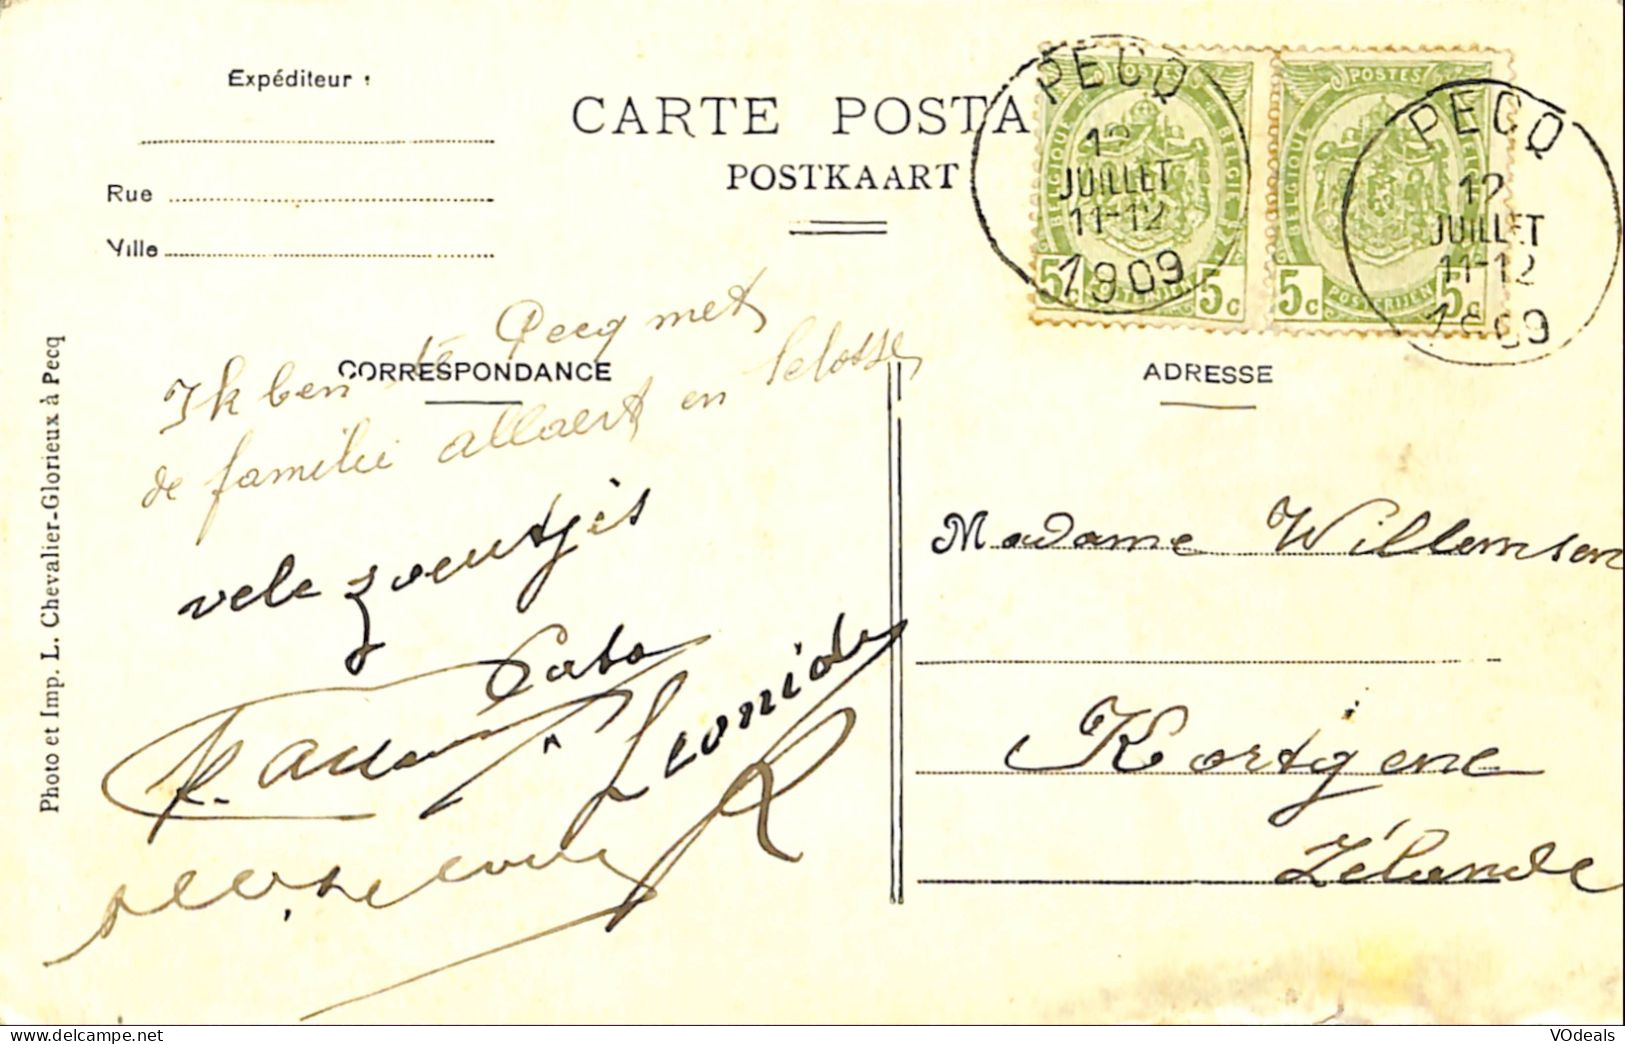 Expéditeur :
Rue
Ville
CARTE POSTA
POSTKAART
PECQ
12
JUILLET
11-12
1909
POSTES
BELGIQUE
BELGIE
5c
5c
POSTES
BELGIQUE
5c
POSTERIJEN
5c
PECQ
12
JUILLET
11-12
1909
CORRESPONDANCE
ADRESSE
Ik ben te Pecq met
de familie allaert en Selosse
vele zoentjes
Leonide
Madame Willemsen
Kortgene
Zélande
Photo et Imp. L. Chevalier-Glorieux à Pecq
© VOdeals